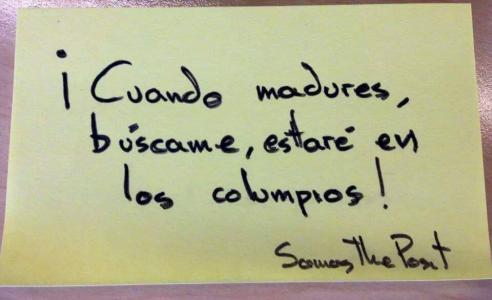 ¡Cuando madures,
búscame, estaré en
los columpios!
Somos The Posit